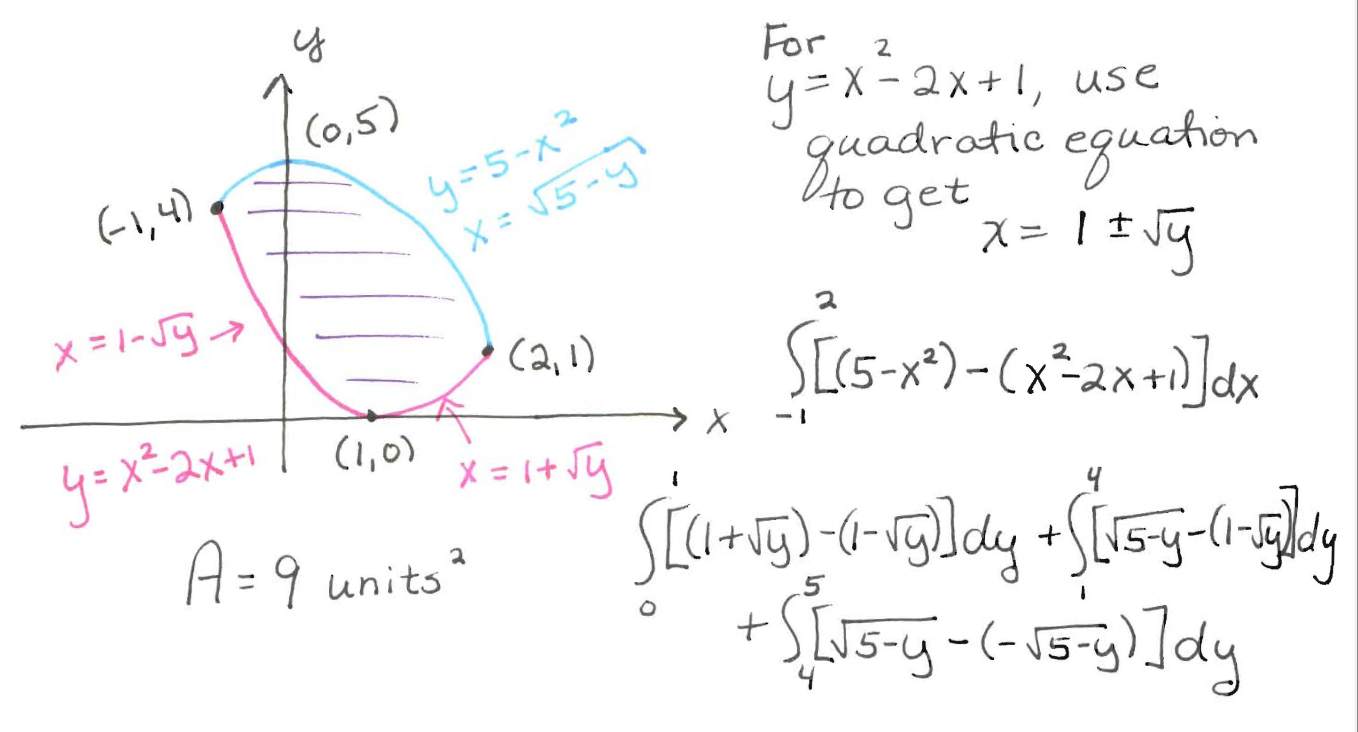 y
(0,5)
y=5-x²
x=√5-y
(-1,4)
x=1-√y →
(2,1)
x
(1,0)
y=x²-2x+1
x=1+√y
A=9 units²
For
y=x²-2x+1, use
quadratic equation
to get
x= 1±√y
∫₋₁² [(5-x²)-(x²-2x+1)]dx
∫₀¹ [(1+√y)-(1-√y)]dy + ∫₁⁴ [√5-y-(1-√y)]dy
+ ∫₄⁵ [√5-y-(-√5-y)]dy